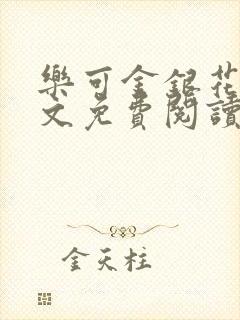 樂可金銀花
文免費閱讀
金天柱